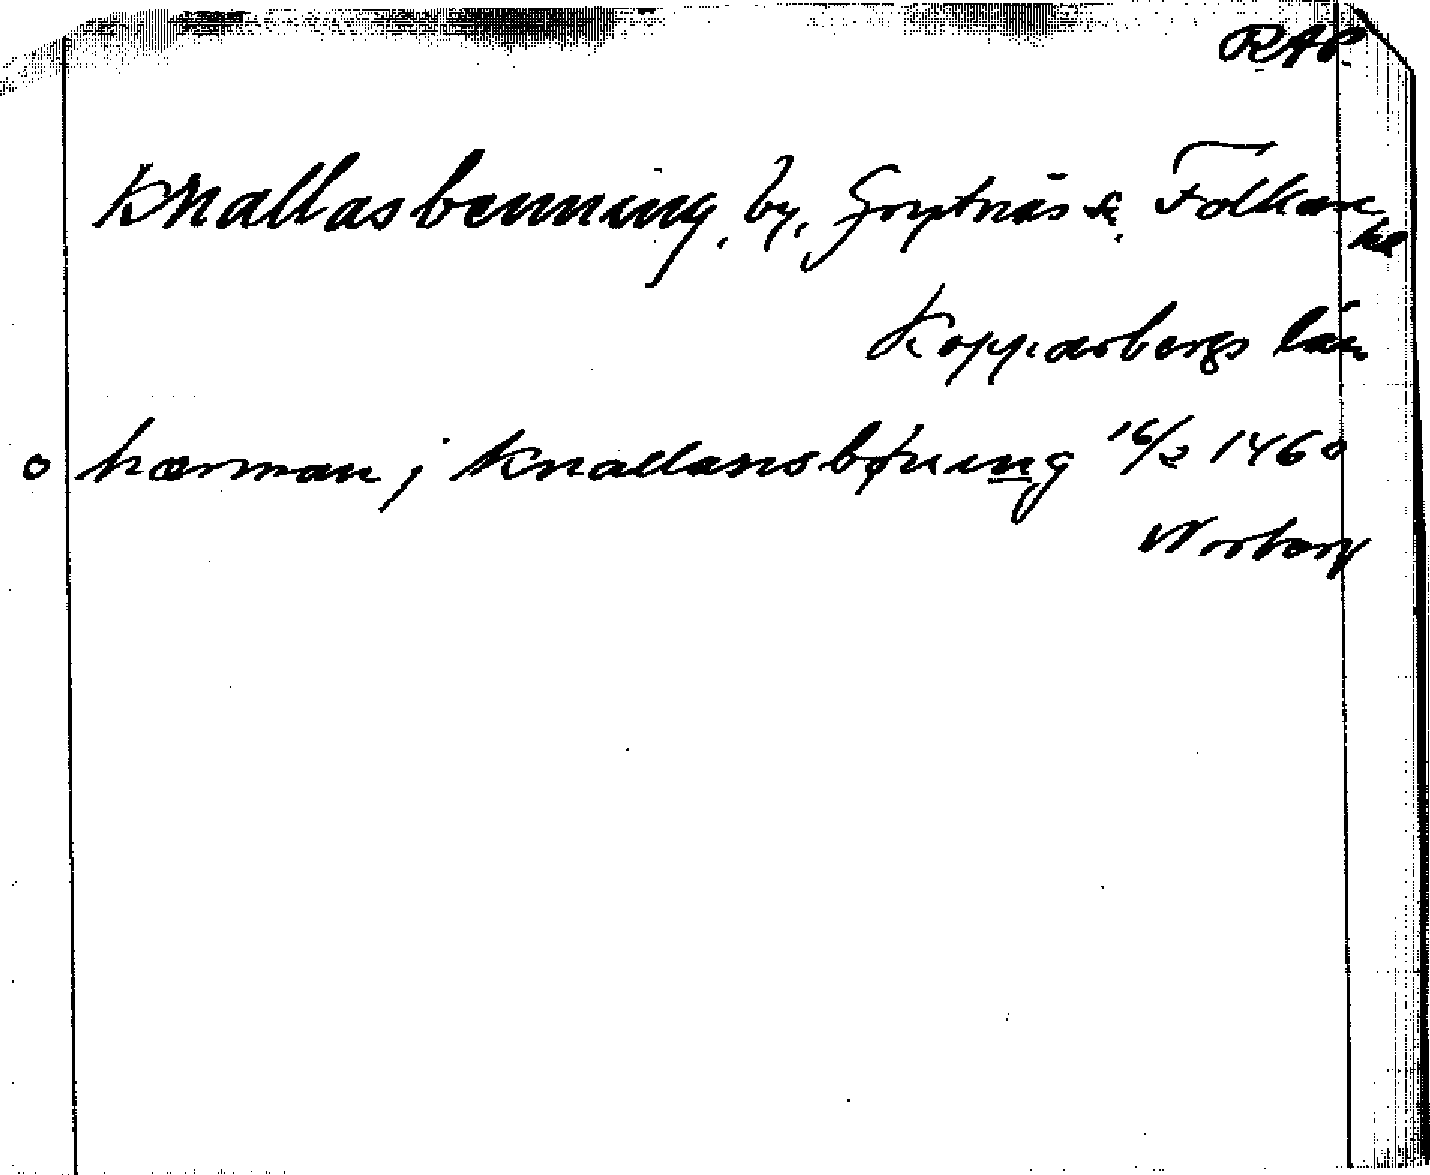 RAP
Knallasbenning, by, Grytnäs sn, Folkare hd
Kopparbergs län
o hærman j Knallansbøning 16/2 1460
Norberg